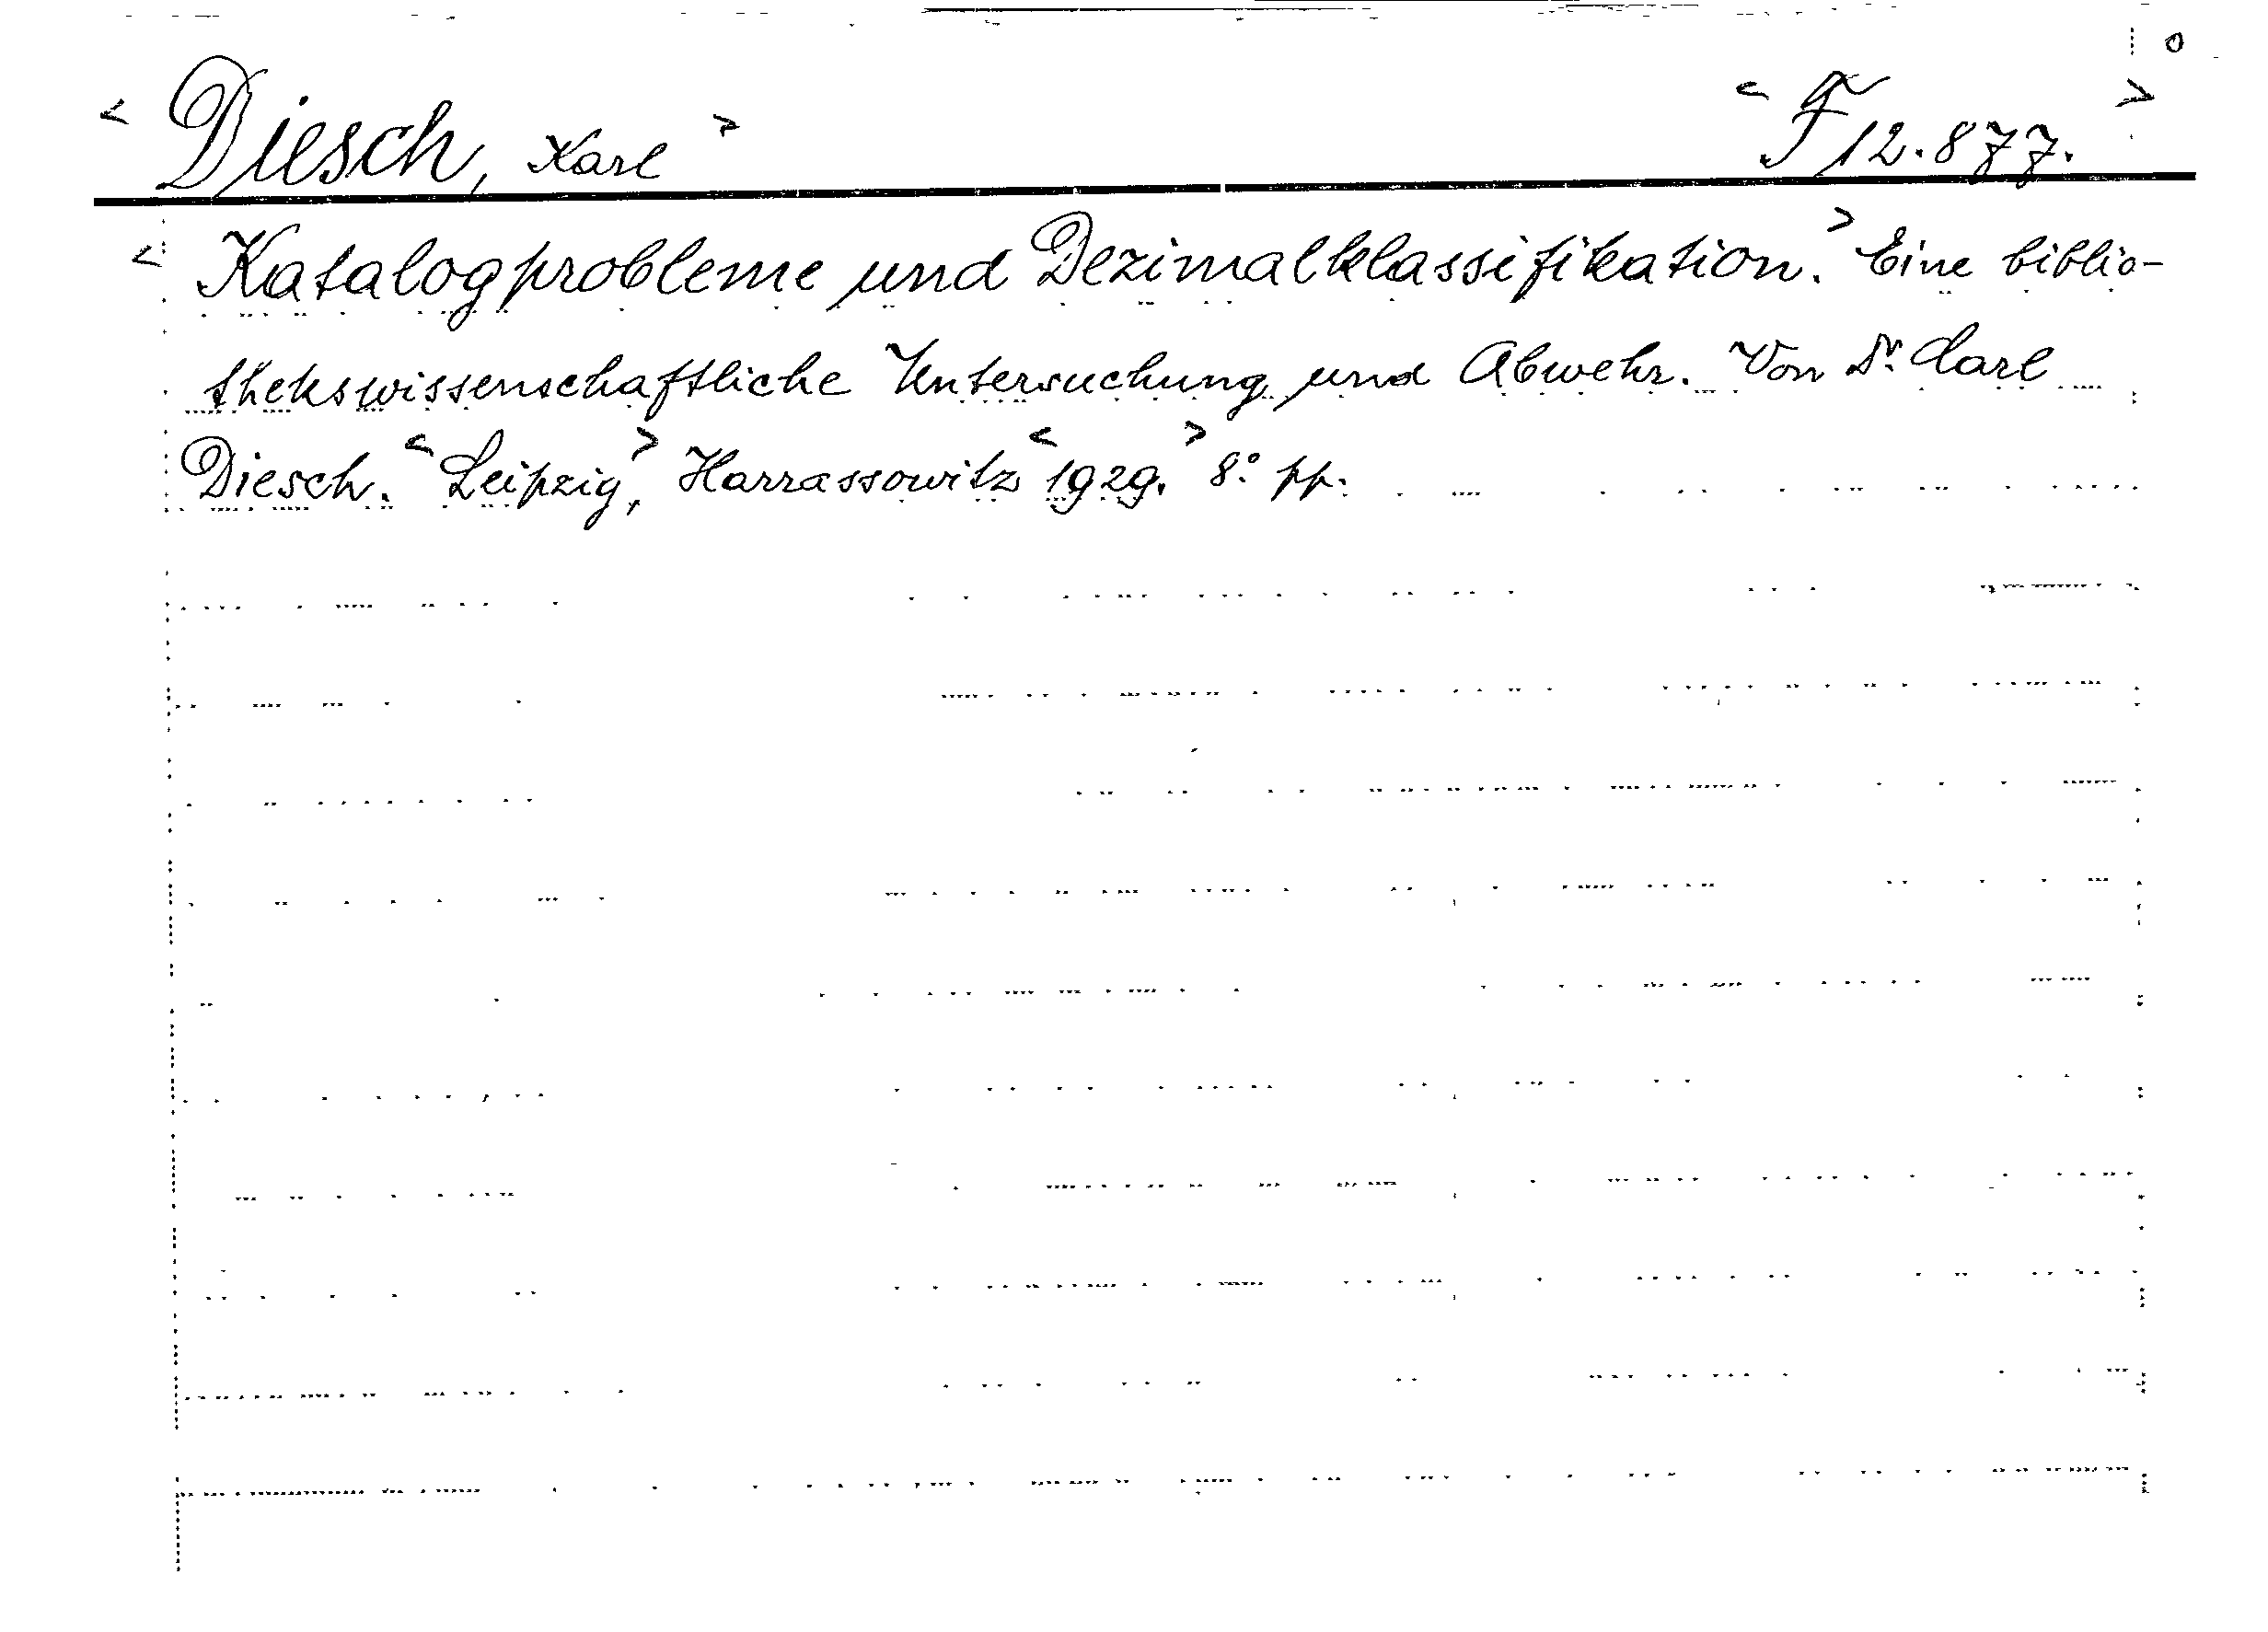 < Diesch, Karl > < F 12.877. >
< Katalogprobleme und Dezimalklassifikation. > Eine biblio-
thekswissenschaftliche Untersuchung und Abwehr. Von Dr. Carl
Diesch. < Leipzig, > Harrassowitz < 1929. > 8° pp.